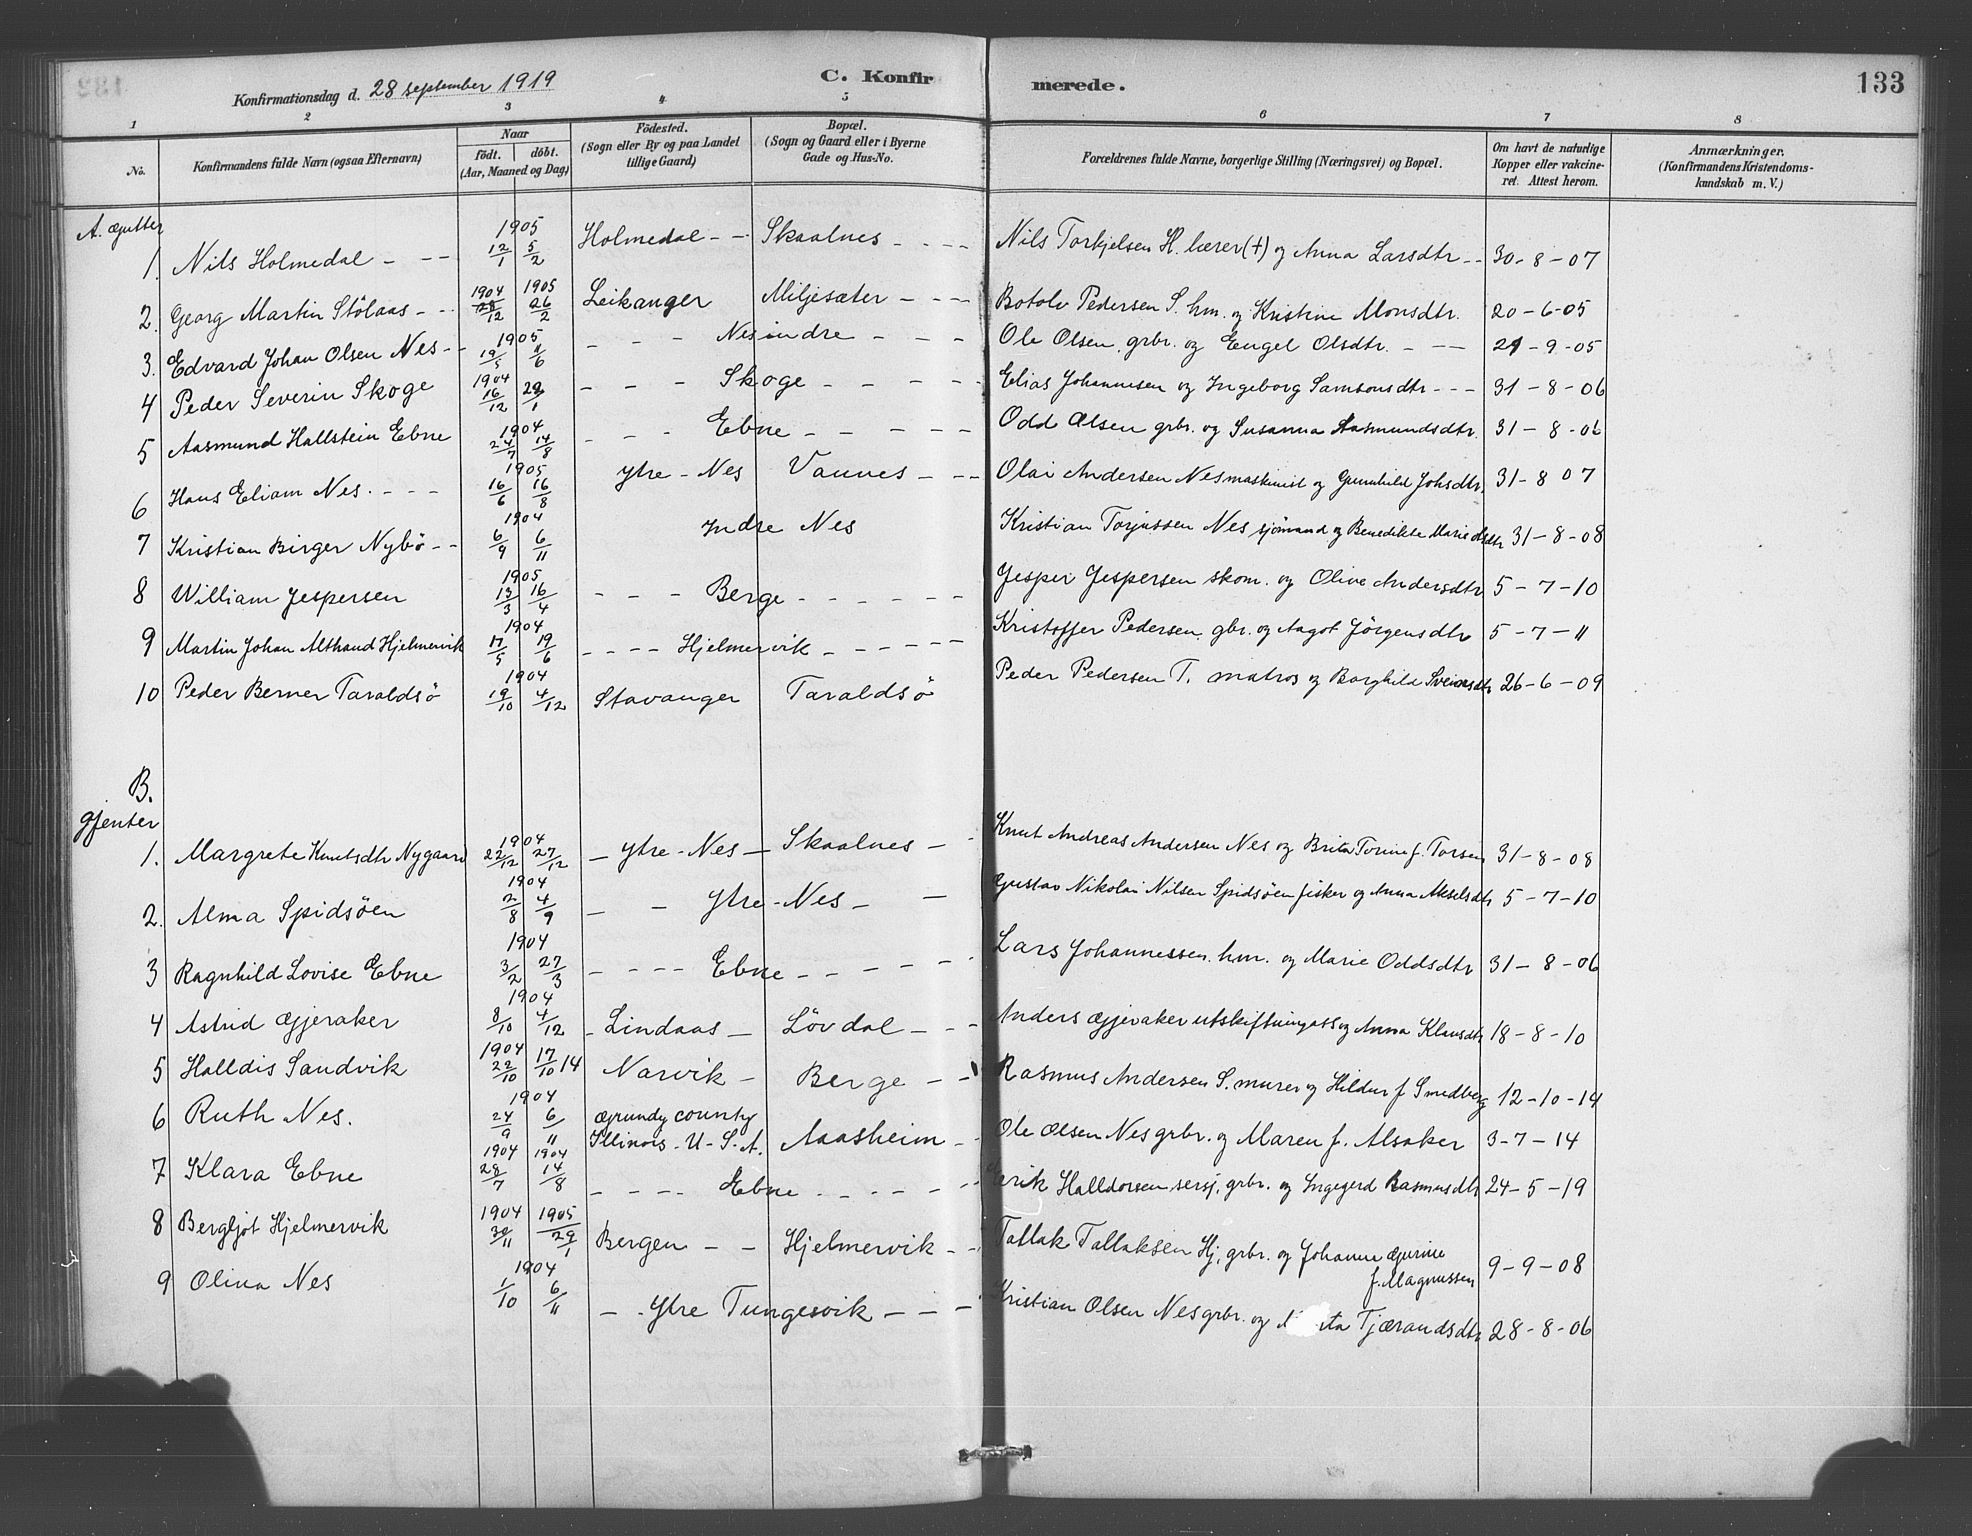 Konfirmationsdag d. 28 september 1919 C. Konfir merede. 133
1 2 3 4 5 6 7 8
No. Konfirmandens fulde Navn (ogsaa Efternavn) Naar födt. döbt. (Aar, Maaned og Dag) Födested. (Sogn eller By og paa Landet tillige Gaard) Bopæl. (Sogn og Gaard eller i Byerne Gade og Hus-No. Forældrenes fulde Navne, borgerlige Stilling (Næringsvei) og Bopæl. Om havt de naturlige Kopper eller vakcineret. Attest herom. Anmærkninger. (Konfirmandens Kristendomskundskab m. V.)
A. gutter
1. Nils Holmedal - -- 1905 12/1 5/2 Holmedal - - Skaalnes - - - - Nils Torkjelsen H. lærer (+) og Anna Larsdtr -- 30-8-07
2. Georg Martin Stölaas - - 1904 28/12 1905 26/2 Leikanger Miljesæter - - - Botolv Pedersen S. hm. og Kristine Monsdtr. 20-6-05
3. Edvard Johan Olsen Nes - - 1905 19/5 11/6 - - - Nes indre - - - Ole Olsen, grbr. og Engel Olsdtr. - -- 21-9-05
4 Peder Severin Skoge 1904 16/12 /1 - - - Skoge - - - - - Elias Johannesen og Ingeborg Samsonsdtr --- 31-8-06
5 Aasmund Hallstein Ebne 1904 24/7 14/8 - - - Ebne - - - - - Odd Olsen grbr. og Susanna Aasmundsdtr. 31-8-06
6 Hans Eliam Nes. - - - 1905 16/6 16/8 ytre - Nes Vannes - -- Olai Andersen Nes maskinist og Gunnhild Johsdtr. 31-8 07
7 Kristian Birger Nybö -- 1904 6/9 6/11 Indre Nes Kristian Torjussen Nes sjömand og Benedikte Marie dtr 31-8-08
8 William Jespersen 1905 13/3 16/4 - - - Berge - - - - - - Jesper Jespersen skom. og Olive Andersdtr 5-7-10
9 Martin Johan Althand Hjelmervik 1904 17/5 19/6 - - - - Hjelmervik - - - - - Kristoffer Pedersen gbr. og Aagot Jörgensdtr 5-7-11
10 Peder Berner Taraldsö 1904 19/10 4/12 Stavanger Taraldsö Peder Pedersen T. matros og Borghild Sveinsdtr 26-6-09
B.
gjenter
1. Margrete Knutsdtr Nygaard 1904 22/12 27/12 - ytre - Nes - Skaalnes - - Knut Andreas Andersen Nes og Brita Torine f. Torsen 31-8-08
2. Alma Spidsöen 1904 2/8 4/9 - - Ytre - Nes - - Gustav Nikolai Nilsen Spidsöen fisker og Anna Akselsdtr 5-7-10
3 Ragnhild Lovise Ebne 1904 3/2 27/3 - - - - Ebne - - - - - Lars Johannessen hm. og Marie Oddsdtr 31-8-06
4 Astrid Gjeraker 1904 8/10 4/12 - Lindaas - Lövdal - - - Anders Gjeraker utskiftningass og Anna Klausdtr 18-8-10
5 Halldis Sandvik 1904 22/10 17/10 14 Narvik - Berge - - Rasmus Andersen S. murer og Hildur f Smedberg 12-10-14
6 Ruth Nes. 1904 24/9 6/11 Grundy county Illinois - U-S.A. Aasheim - - Ole Olsen Nes grbr. og Maren f. Alsaker 3-7-14
7 Klara Ebne 1904 28/7 1904 14/8 - - - - Ebne - - - - - Erik Halldorsen sersj. grbr. og Ingegerd Rasmusdtr 24-5-19
8 Bergljot Hjelmervik 1904 30/11 1905 29/1 Bergen - - Hjelmervik - - Tallak Tallaksen Hj. grbr. og Johanne Gurine
f. Magnussen 9-9-08
9 Olina Nes 1904 1/10 6/11 - - Ytre Tungesvik - - - Kristian Olsen Nes grbr. og ta Tjærandsdtr 28-8-06